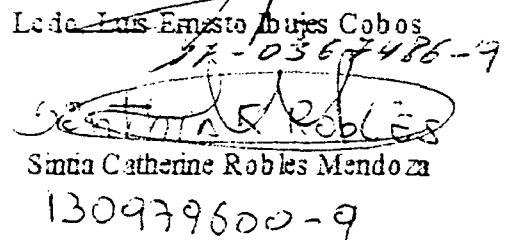 Lcdo. Luis Ernesto Ibujes Cobos
17-0367486-9
SCINTIA R ROBLES
Sintia Catherine Robles Mendoza
130979600-9